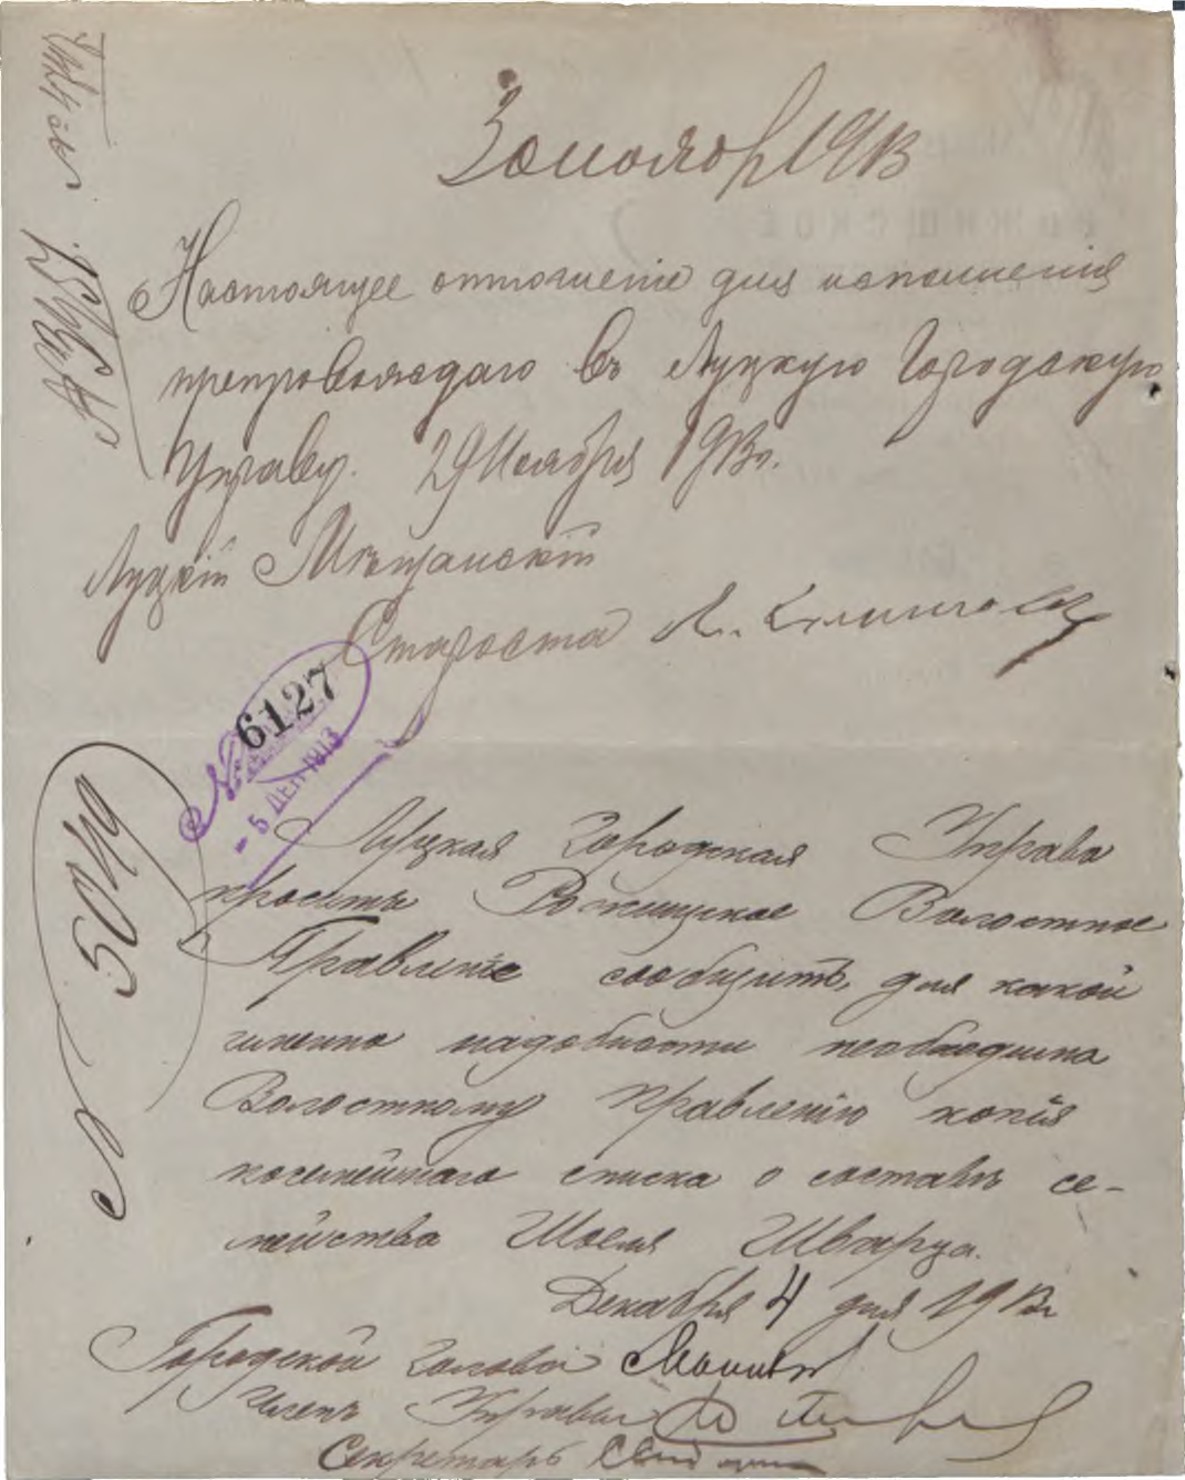 Настоящее отношеніе для исполненія
препровождаю въ Луцкую Городскую
Управу. 29 Ноября 1913 г.
Луцкій Мѣщанскій
Староста
№ 6127
- 5 ДЕК 1913
Луцкая Городская Управа
проситъ Рожищское Волостное
Правленіе сообщить, для какой
именно надобности необходима
Волостному Правленію копія
посемейнаго списка о составѣ се-
мейства Шоеля Шварца.
Декабря 4 дня 1913 г.
Городской Голова
Членъ Управы
Секретарь